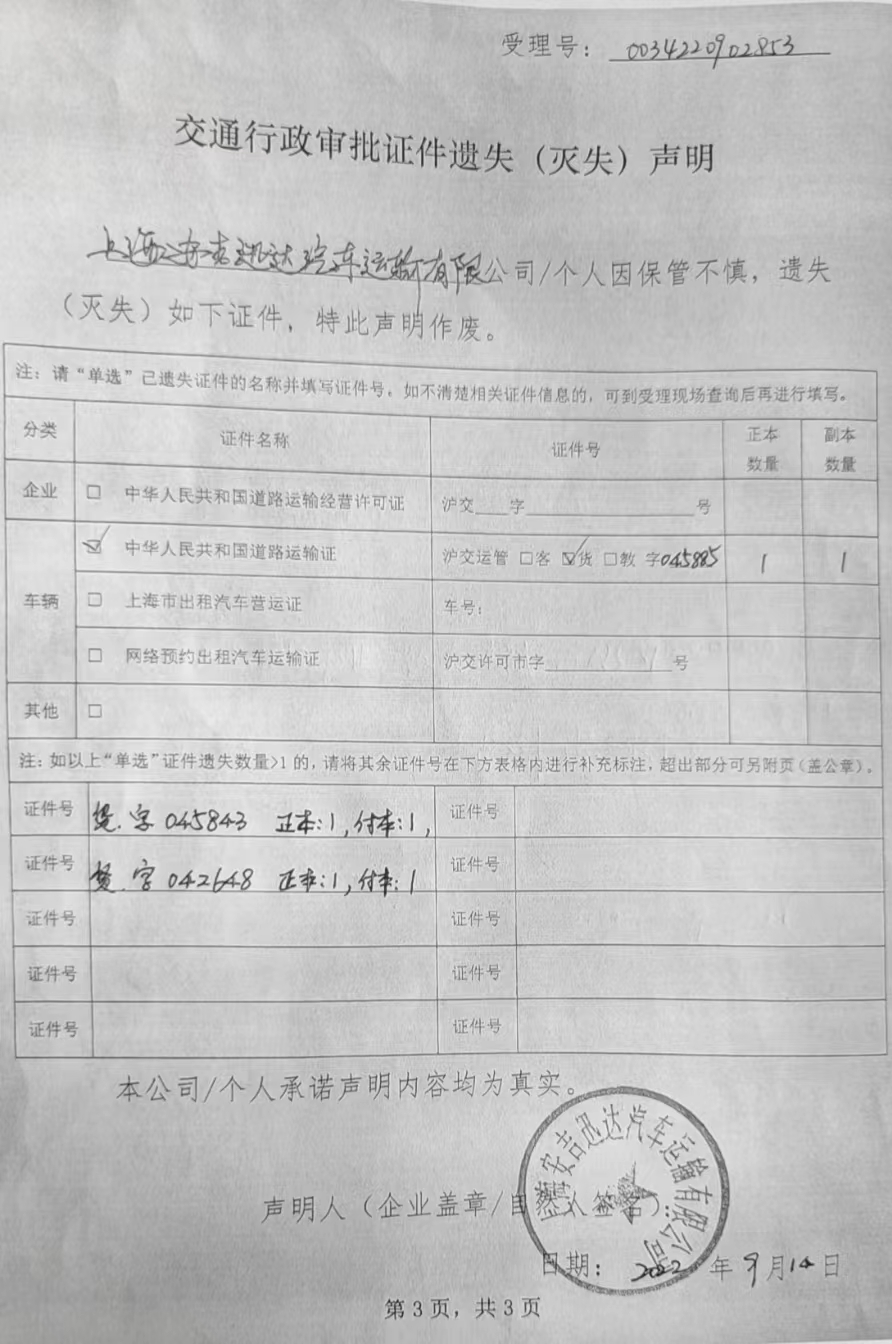 受理号：0034220902853
交通行政审批证件遗失（灭失）声明
上海安吉迅达汽车运输有限公司/个人因保管不慎，遗失
（灭失）如下证件，特此声明作废。
注：请“单选”已遗失证件的名称并填写证件号，如不清楚相关证件信息的，可到受理现场查询后再进行填写。
分类 证件名称 证件号 正本数量 副本数量
企业 □ 中华人民共和国道路运输经营许可证 沪交___字______________号
车辆 ☑ 中华人民共和国道路运输证 沪交运管 □客 ☑货 □教 字045885 1 1
□ 上海市出租汽车营运证 车号：
□ 网络预约出租汽车运输证 沪交许可市字__________号
其他 □
注：如以上“单选”证件遗失数量>1的，请将其余证件号在下方表格内进行补充标注，超出部分可另附页（盖公章）。
证件号 货.字045843 正本:1,付本:1, 证件号
证件号 货.字042648 正本:1,付本:1 证件号
证件号 证件号
证件号 证件号
证件号 证件号
本公司/个人承诺声明内容均为真实。
上海安吉迅达汽车运输有限公司
声明人（企业盖章/自然人签名）：
日期：2022年9月14日
第3页，共3页